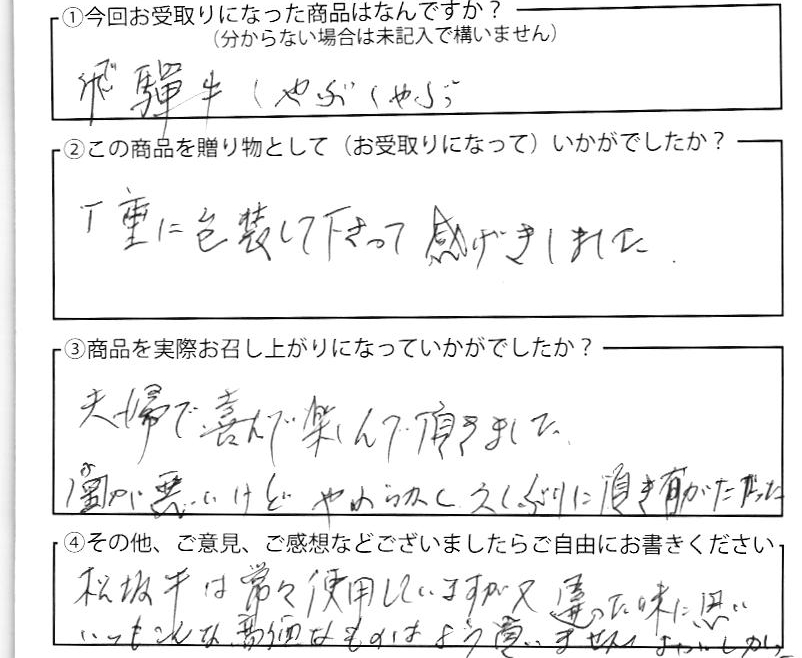 ①今回お受取りになった商品はなんですか？
（分からない場合は未記入で構いません）
飛騨牛しゃぶしゃぶ
②この商品を贈り物として（お受取りになって）いかがでしたか？
丁重に包装して下さって感げきしました.
③商品を実際お召し上がりになっていかがでしたか？
夫婦で喜んで楽しんで頂きました.
悪いけど やわらかく 久しぶりに頂き有がたかった
④その他、ご意見、ご感想などございましたらご自由にお書きください
松坂牛は常々使用していますが又違った味に思い
いつもこんな高価なものはよう買いません